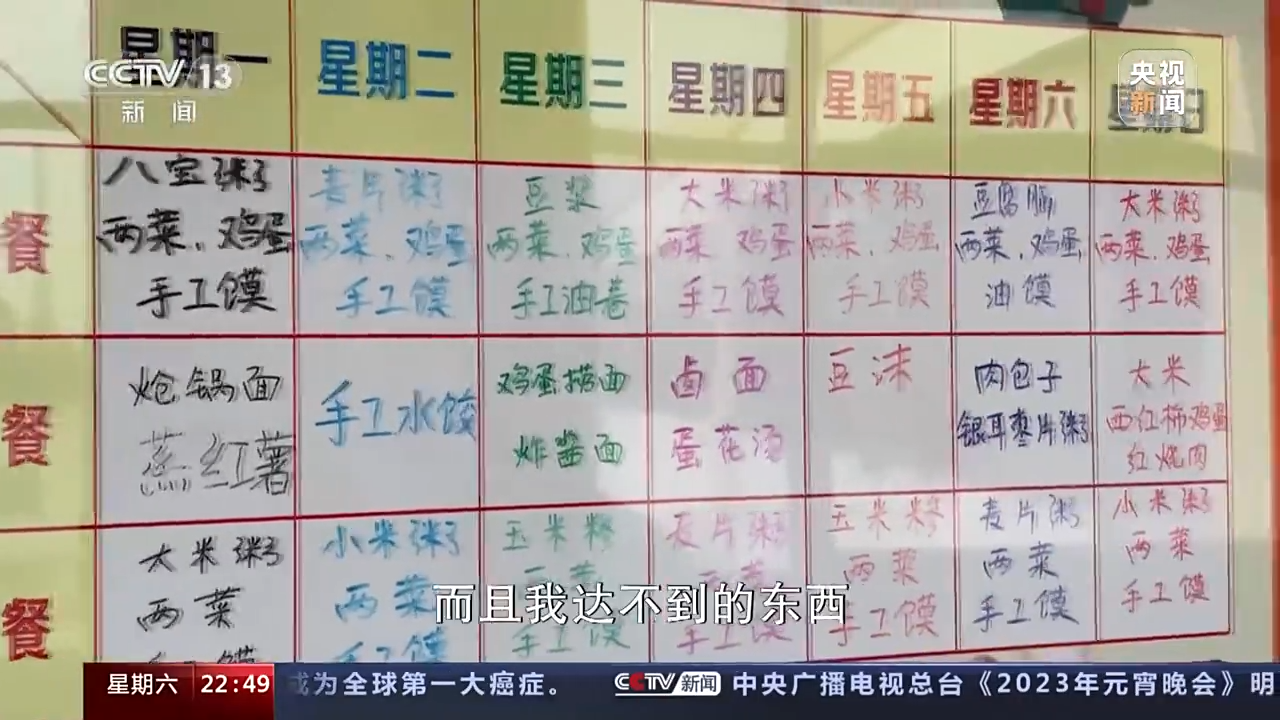 CCTV 13
新闻
央视
新闻
星期一 星期二 星期三 星期四 星期五 星期六 星期日
餐
八宝粥
两菜、鸡蛋
手工馍
麦片粥
两菜、鸡蛋
手工馍
豆浆
两菜、鸡蛋
手工油卷
大米粥
两菜 鸡蛋
手工馍
小米粥
两菜、鸡蛋
手工馍
豆腐脑
两菜、鸡蛋
油馍
大米粥
两菜、鸡蛋
手工馍
餐
炝锅面
蒸红薯
手工水饺
鸡蛋捞面
炸酱面
卤面
蛋花汤
豆沫
肉包子
银耳枣片粥
大米
西红柿鸡蛋
红烧肉
餐
大米粥
两菜
手工馍
小米粥
两菜
手工
玉米糁
两菜
手工馍
麦片粥
两菜
手工馍
玉米糁
两菜
手工馍
麦片粥
两菜
手工馍
小米粥
两菜
手工馍
而且我达不到的东西
星期六 22:49 成为全球第一大癌症。 CCTV新闻 中央广播电视总台《2023年元宵晚会》明